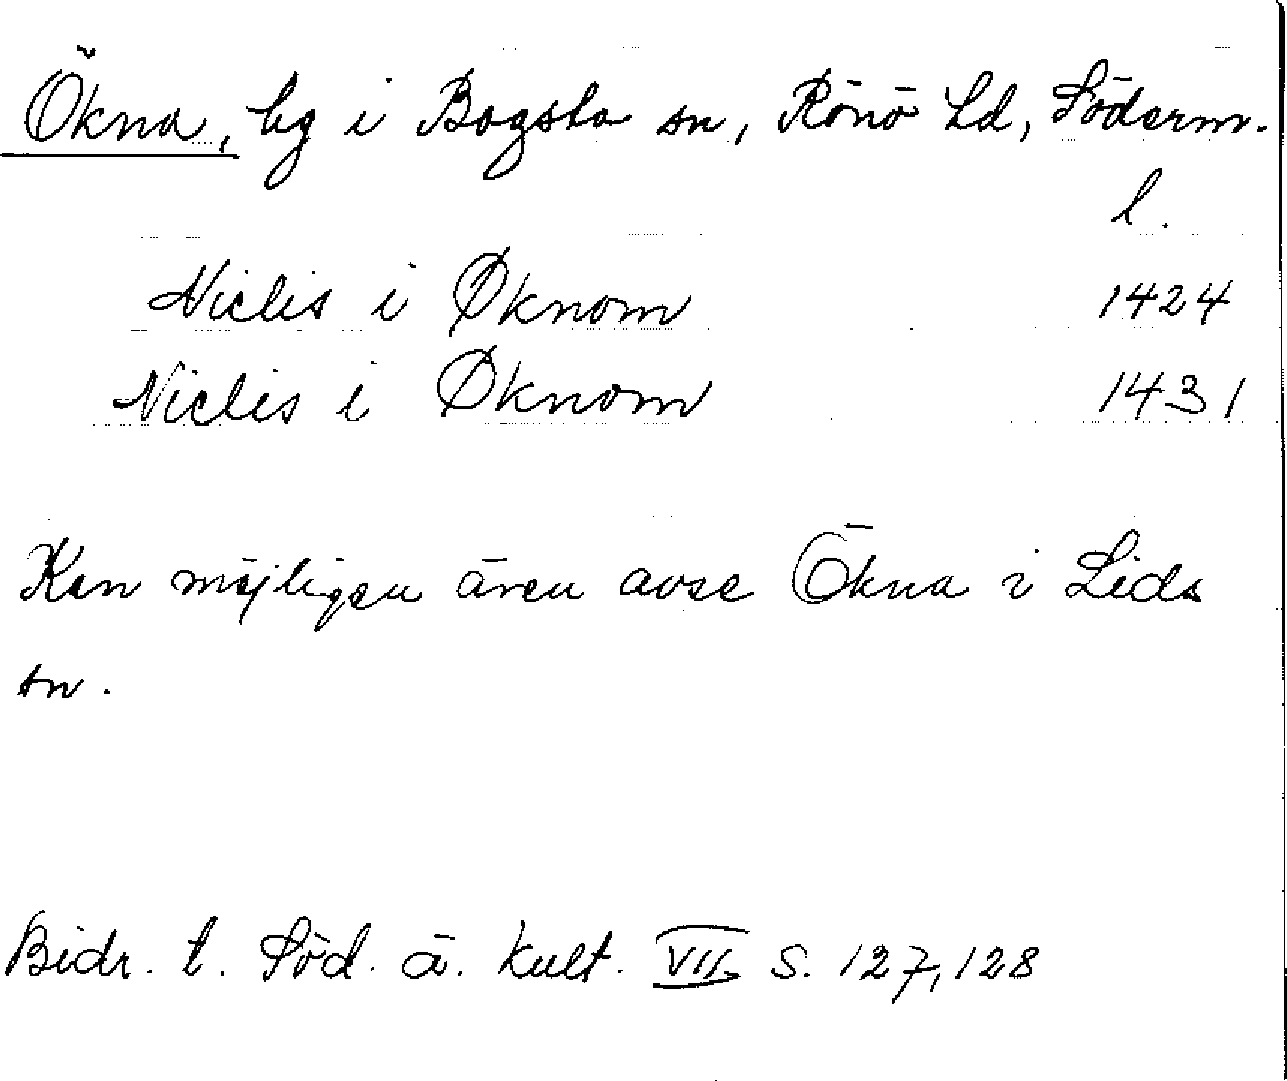 Ökna, by i Bogsta sn, Rönö hd, Söderm.
l.
Niclis i Øknom 1424
Niclis i Øknom 1431
Kan möjligen även avse Ökna i Lids
sn.
Bidr. t. Söd. ä. kult. VII. S. 127, 128